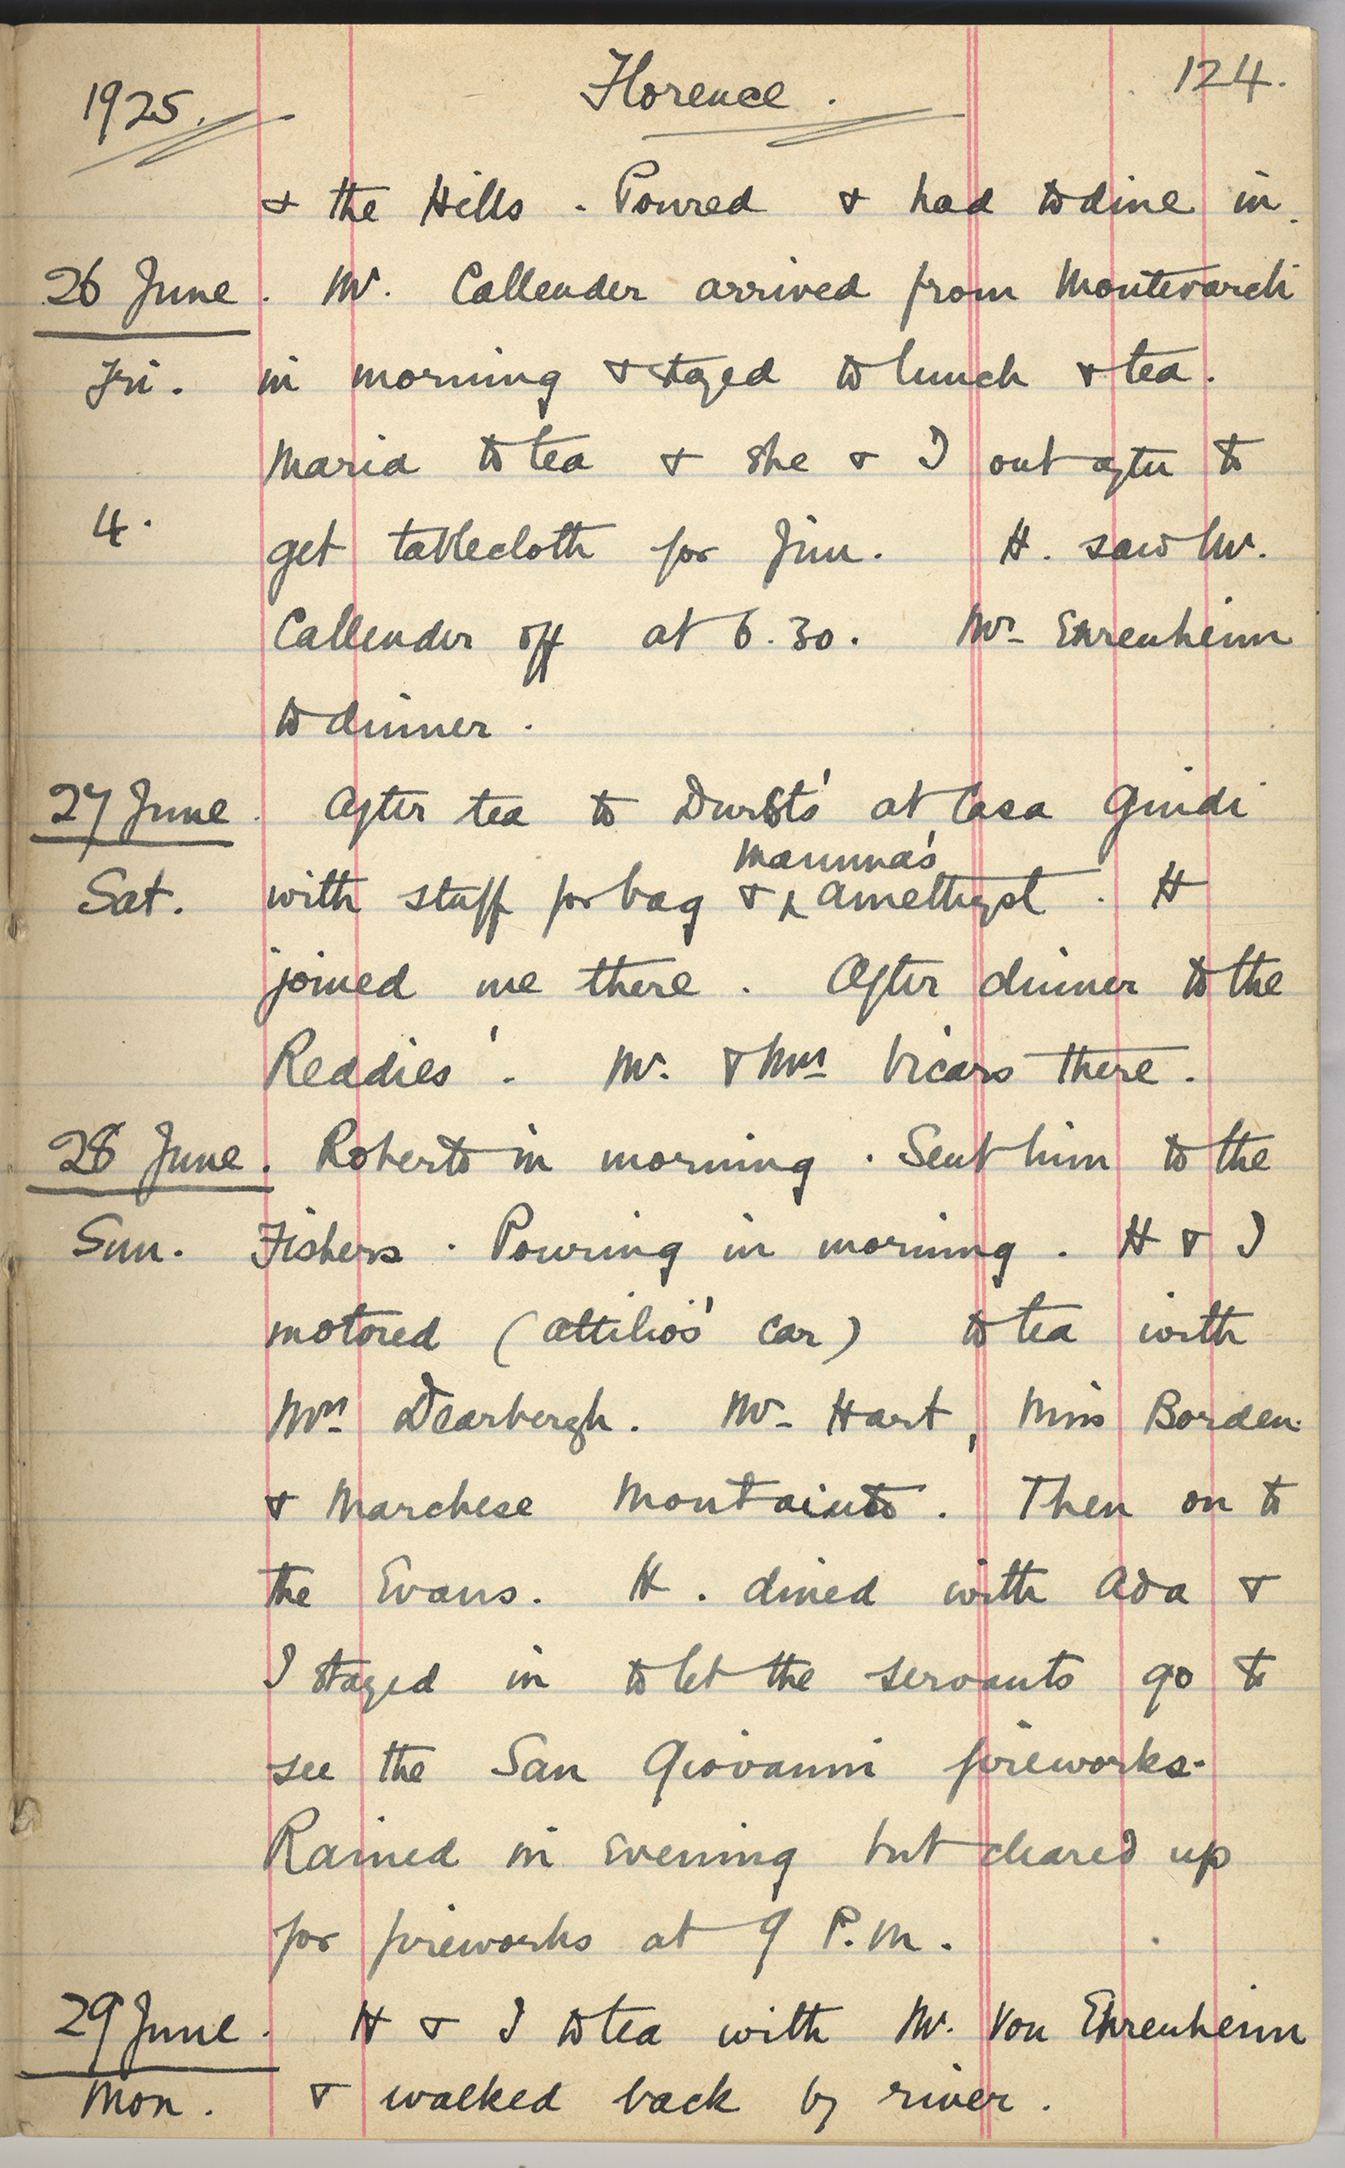 1925. Florence. 124.
& the Hills. Poured & had to dine in.
26 June. Mr. Callender arrived from Montevarchi
Fri. in morning & stayed to lunch & tea.
Maria to tea & she & I out after to
4. get tablecloth for Jim. H. saw Mr.
Callender off at 6.30. Mr. Ehrenheim
to dinner.
27 June. After tea to Dursts' at Casa Guidi
Mamma's
Sat. with stuff for bag & amethyst. H
joined me there. After dinner to the
Reddies'. Mr. & Mrs Vicars there.
28 June. Roberto in morning. Sent him to the
Sun. Fishers. Pouring in morning. H & I
motored (Attilio's car) to tea with
Mrs Dearbergh. Mr. Hart, Miss Borden
& Marchese. Then on to
the Evans. H. dined with Ada &
I stayed in to let the servants go to
see the San Giovanni fireworks.
Rained in evening but cleared up
for fireworks at 9 P.M.
29 June. H & I to tea with Mr. Von Ehrenheim
Mon. & walked back by river.